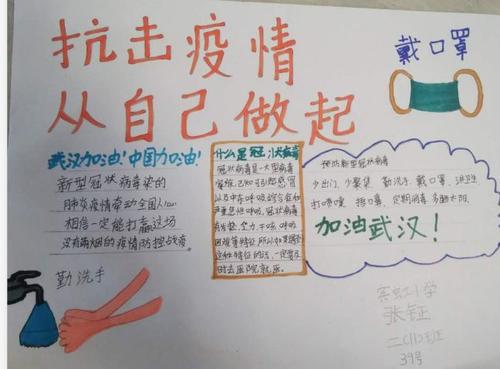 抗击疫情
从自己做起
戴口罩
武汉加油！中国加油！
新型冠状病毒染的
肺炎疫情牵动全国人
相信一定能打赢这场
没有硝烟的疫情防控战斋
勤洗手
什么是冠状病毒
冠状病毒是一大型病毒
已知可引起感冒
以及中东呼吸综合征和
严重急性呼吸，冠状病毒
有发热、乏力、干咳、呼吸
困难等特征，所以如果遇到
这种特征的话，一定要及
时去医院就医。
预防新型冠状病毒
少出门、少聚集 勤洗手、戴口罩、
打喷嚏 捂口鼻、定期消毒
加油武汉！
小学
张钲
二(1)班
39号